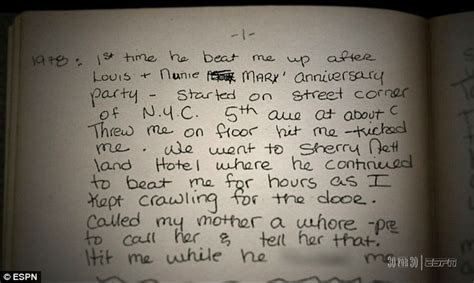 -1-
1978: 1st time he beat me up after
Louis + Nunie Marx' anniversary
party - started on street corner
of N.Y.C. 5th ave at about C
Threw me on floor hit me - kicked
me. We went to Sherry Nett
land Hotel where he continued
to beat me for hours as I
kept crawling for the door.
Called my mother a whore - pre
to call her & tell her that.
Hit me while he me
30 for 30 | ESPN
© ESPN